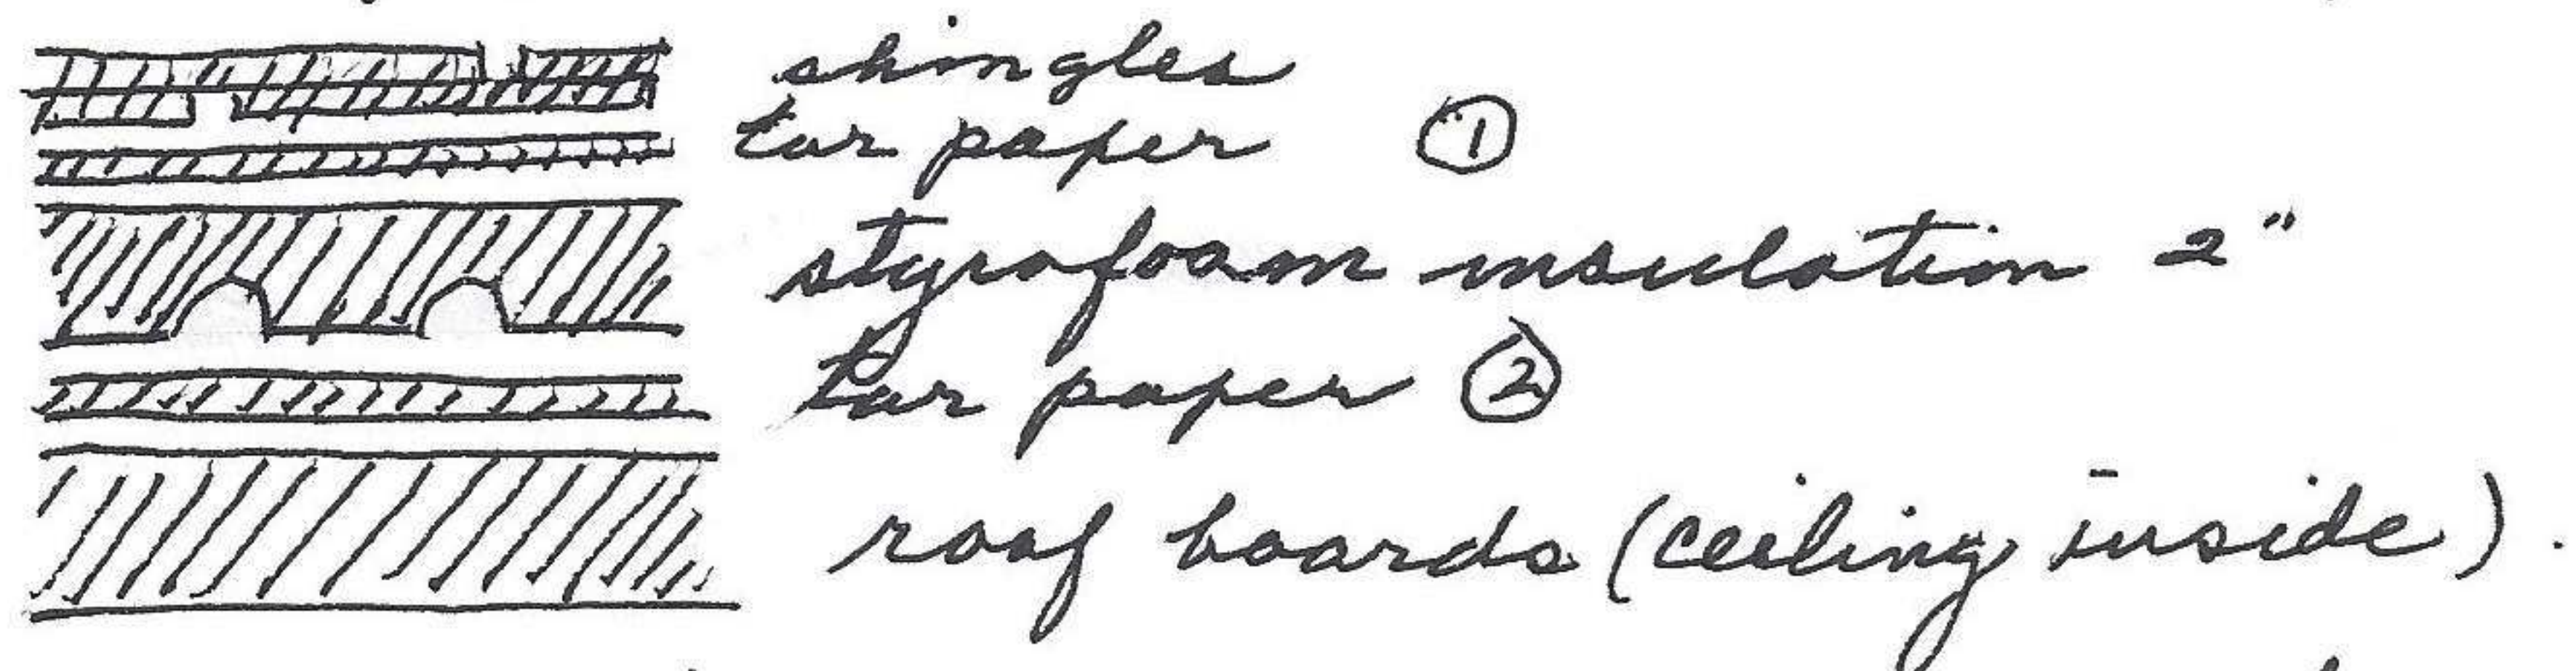 shingles
tar paper ①
styrofoam insulation 2"
tar paper ②
roof boards (ceiling inside).